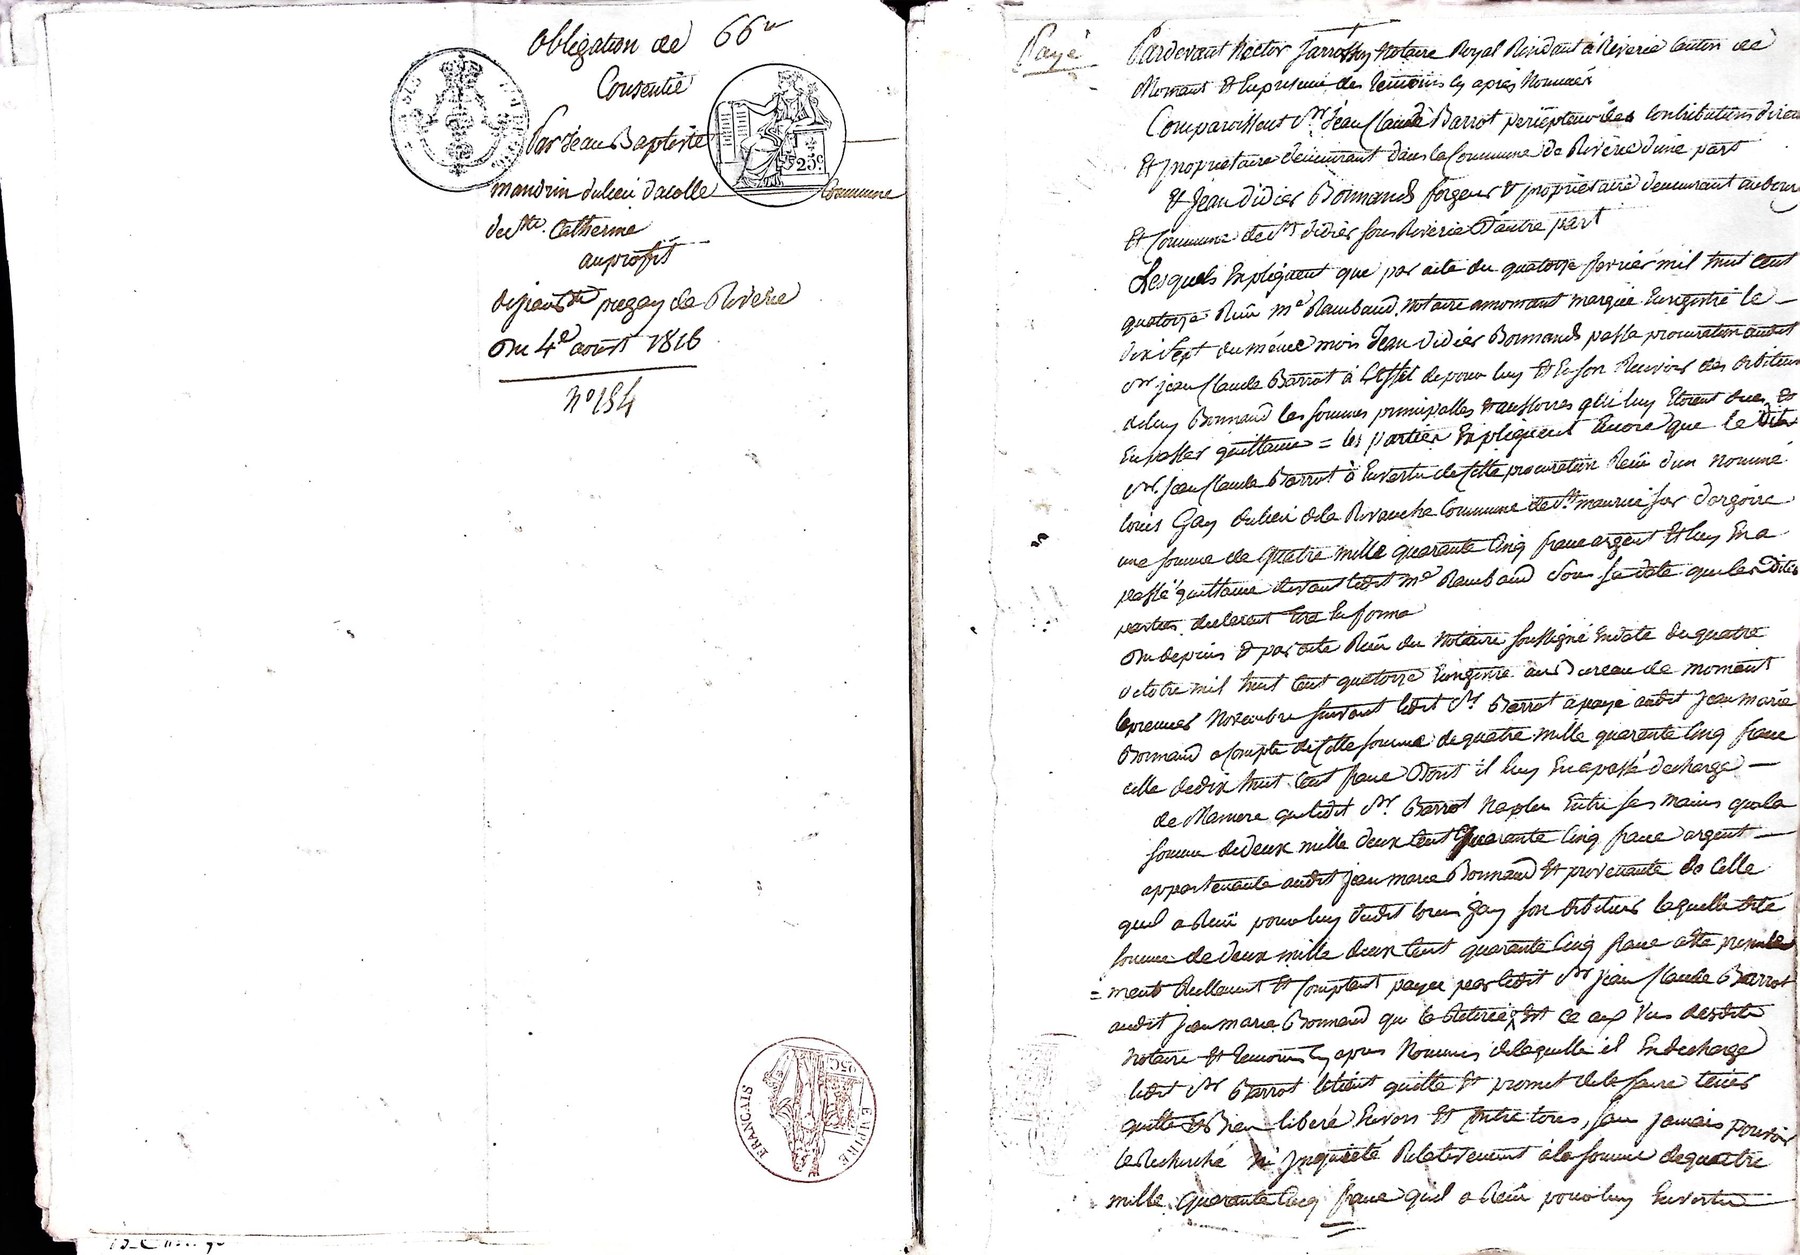 Obligation de 66 ##
Consentie
Par Jean Baptiste
mandrin du lieu dacolle Commune
de Ste. Catherine
au profit
de pregey de Riverie
Du 4e aout 1816
n° 154
25c
EMPIRE FRANÇAIS
25C
Payé
Pardevant hector Jarrosson Notaire Royal Residant à Riverie Canton de
Mornant Et En presence des Temoins Cy après Nommés
Comparoissent Sr. Jean Claude Barrot percepteur des Contributions
Et propriétaire demeurant dans la Commune de Riverie d'une part
Et Jean Didier Bonnand forgeur Et propriétaire demeurant au bourg
Et Commune de St didier sous Riverie D'autre part
Lesquels Expliquent que par acte du quatorze fevrier mil huit cent
quatorze Reçû Me Raimbaud Notaire a mornant Enregistré le
dix sept du même mois Jean Didier Bonnand passa procuration audit
Sr jean Claude Barrot à L'effet de pour luy Et En son Recevoir des debiteurs
de luy Bonnand les sommes principalles Et accessoires qui luy Etoient dues Et
En passer quittance = les parties Expliquent Encore que le dit
Sr. Jean Claude Barrot à En vertu de Cette procuration Reçû d'un Nommé
louis Gay du lieu de la Rivauche Commune de St maurice sur dargoire
une somme de quatre mille quarante Cinq franc argent Et luy En a
passé quittance devant ledit Me Raimbaud Sous Sa date que les dites
parties declarent Etre En forme
Du depuis Et par acte Reçû du Notaire soussigné En date du quatre
octobre mil huit Cent quatorze Enregistré au Bureau de mornant
le premier Novembre suivant ledit Sr Barrot a payé audit Jean marie
Bonnand a Compte de Cette somme de quatre mille quarante Cinq franc
celle de dix huit Cent franc Dont il luy En a passé decharge
de Maniere que ledit Sr. Barrot Na plus Entre ses mains que la
somme de deux mille deux Cent quarante Cinq franc argent
appartenante audit jean marie Bonnand Et provenante de Celle
quil a Reçû pour luy dudit louis Gay son debiteur laquelle dite
somme de deux mille deux Cent quarante Cinq franc a été presente
= ment Reellement Et Comptant payée par ledit Sr jean Claude Barrot
audit Jean marie Bonnand qui la Retirée Et ce aux Vus desdits
Notaire Et temoins Cy apres Nommés de laquelle il En decharge
ledit Sr Barrot le tient quitte Et promet de le faire tenir
quitte Et Bien libéré Envers Et Contre tous, sans jamais pouvoir
le Recherché Ni Inquiété Relativement à la somme de quatre
mille quarante Cinq franc quil a Reçû pour luy En vertu